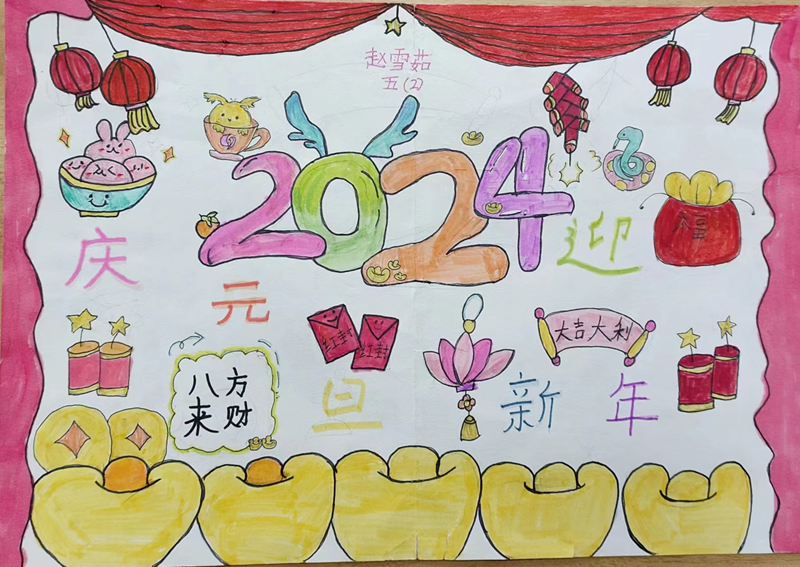 赵雪茹
五(2)
2024
福
庆元旦
迎新年
红封
红封
大吉大利
八方
来财